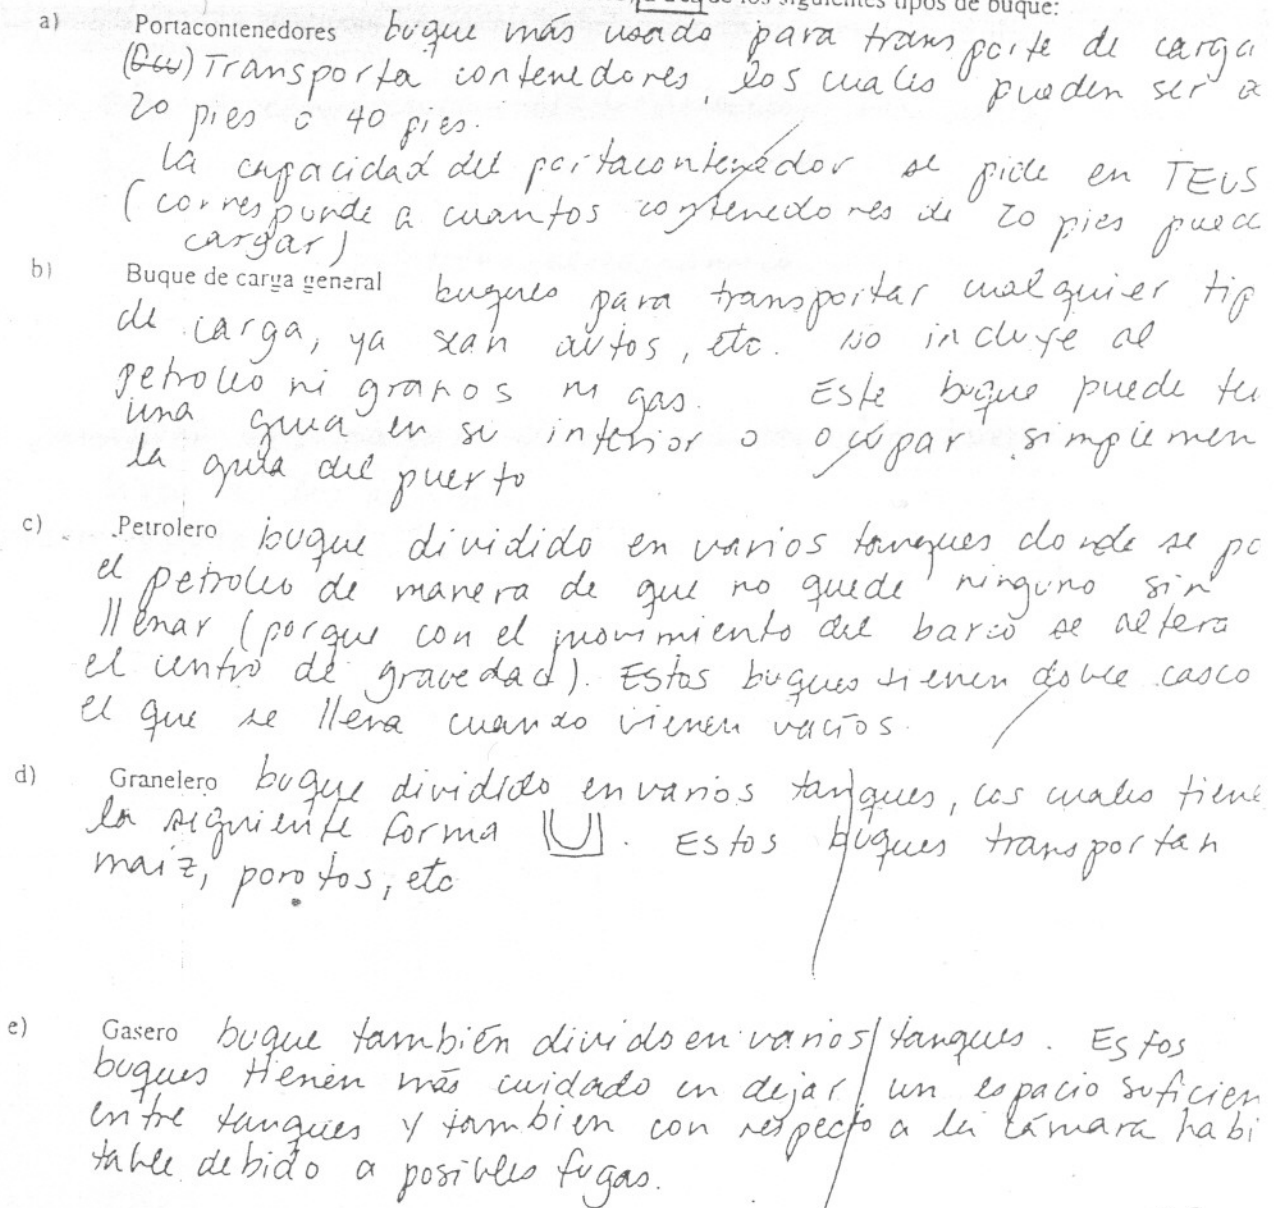 los siguientes tipos de buque:
a) Portacontenedores buque más usado para transporte de carga
(Gw) Transporta contenedores, los cuales pueden ser o
20 pies o 40 pies.
La capacidad del portacontenedor se pide en TEUS
(corresponde a cuantos contenedores de 20 pies pued
cargar)
b) Buque de carga general buques para transportar cualquier tip
de carga, ya sean autos, etc. No incluye al
petroleo ni granos ni gas. Este buque puede te
una grua en su interior o ocupar simplemen
la grúa del puerto
c) Petrolero buque dividido en varios tanques donde se po
el petroleo de manera de que no quede ninguno sin
llenar (porque con el movimiento del barco se altera
el centro de gravedad). Estos buques tienen doble casco
el que se llena cuando vienen vacíos.
d) Granelero buque dividido en varios tanques, los cuales tiene
la siguiente forma . Estos buques transportan
maíz, porotos, etc
e) Gasero buque también divido en varios tanques. Estos
buques tienen más cuidado en dejar un espacio suficien
entre tanques y tambien con respecto a la cámara habi
table debido a posibles fugas.